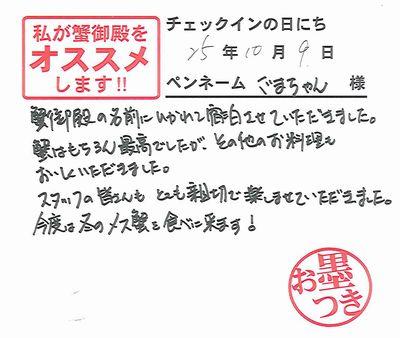 私が蟹御殿を
オススメ
します!!
チェックインの日にち
25年10月9日
ペンネーム ごまちゃん 様
蟹御殿の名前にひかれて宿泊させていただきました。
蟹はもちろん最高でしたが、その他のお料理も
おいしいただきました。
スタッフの皆さんもとても親切で楽しませていただきました。
今度は冬のメス蟹を食べに来ます!
お墨つき